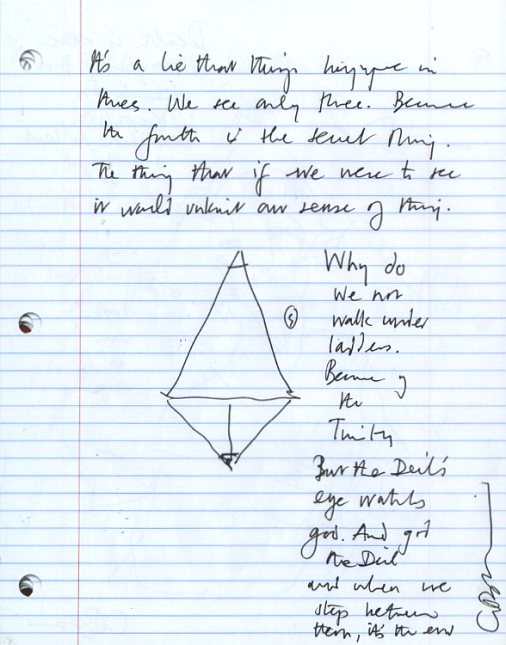 It's a lie that things happen in
threes. We see only three. Because
the fourth is the secret thing.
The thing that if we were to see
it would unknit our sense of thing.
Why do
we not
walk under
ladders.
Because of
the
Trinity
But the Devil's
eye watches
god. And god
the Devil
and when we
step between
them, it's the end